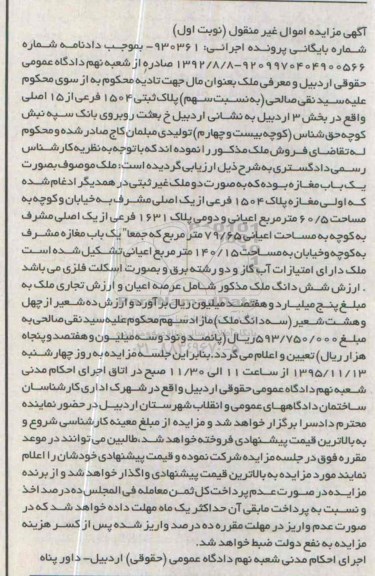 آگهی مزایده اموال غیر منقول (نوبت اول)
شماره بایگانی پرونده اجرائی: ۹۳۰۳۶۱- بموجب دادنامه شماره
۹۲۰۹۹۷۰۴۰۴۹۰۰۵۶۶-۱۳۹۲/۸/۸ صادره از شعبه نهم دادگاه عمومی
حقوقی اردبیل و معرفی ملک بعنوان مال جهت تادیه محکوم به از سوی محکوم
علیه سید نقی صالحی (به نسبت سهم) پلاک ثبتی ۱۵۰۴ فرعی از ۱۵ اصلی
واقع در بخش ۳ اردبیل به نشانی اردبیل خ بعثت روبروی بانک سپه نبش
کوچه حق شناس (کوچه بیست و چهارم) تولیدی مبلمان کاج صادر شده و محکوم
له تقاضای فروش ملک مذکور را نموده اند که با توجه به نظریه کارشناس
رسمی دادگستری به شرح ذیل ارزیابی گردیده است: ملک موصوف بصورت
یک باب مغازه بوده که به صورت دو ملک غیر ثبتی در همدیگر ادغام شده
که اولی مغازه پلاک ۱۵۰۴ فرعی از یک اصلی مشرف به خیابان و کوچه به
مساحت ۶۰/۵ متر مربع اعیانی و دومی پلاک ۱۶۳۱ فرعی از یک اصلی مشرف
به کوچه به مساحت اعیانی ۷۹/۶۵ متر مربع که جمعا" یک باب مغازه مشرف
به کوچه و خیابان به مساحت ۱۴۰/۱۵ متر مربع اعیانی تشکیل شده است
ملک دارای امتیازات آب گاز و دو رشته برق و بصورت اسکلت فلزی می باشد
. ارزش شش دانگ ملک مذکور شامل عرصه اعیان و ارزش تجاری ملک به
مبلغ پنج میلیارد و هفتصد میلیون ریال برآورد و ارزش ده شعیر از چهل
و هشت شعیر (سه دانگ ملک) مازاد سهم محکوم علیه سید نقی صالحی به
مبلغ ۵۹۳/۷۵۰/۰۰۰ ریال (پانصد و نود و سه میلیون و هفتصد و پنجاه
هزار ریال) تعیین و اعلام می گردد. بنابراین جلسه مزایده به روز چهارشنبه
۱۳۹۵/۱۱/۱۳ از ساعت ۱۱ الی ۱۱/۳۰ صبح در اتاق اجرای احکام مدنی
شعبه نهم دادگاه عمومی حقوقی اردبیل واقع در شهرک اداری کارشناسان
ساختمان دادگاههای عمومی و انقلاب شهرستان اردبیل در حضور نماینده
محترم دادسرا برگزار خواهد شد و مزایده از مبلغ معینه کارشناسی شروع و
به بالاترین قیمت پیشنهادی فروخته خواهد شد، طالبین می توانند در موعد
مقرره فوق در جلسه مزایده شرکت نموده و قیمت پیشنهادی خودشان را اعلام
نمایند مورد مزایده به بالاترین قیمت پیشنهادی واگذار خواهد شد و از برنده
مزایده در صورت عدم پرداخت کل ثمن معامله فی المجلس ده درصد اخذ
و نسبت به پرداخت مابقی آن حداکثر یک ماه مهلت داده خواهد شد که در
صورت عدم واریز در مهلت مقرره ده درصد واریز شده پس از کسر هزینه
مزایده به نفع دولت ضبط خواهد شد.
اجرای احکام مدنی شعبه نهم دادگاه عمومی (حقوقی) اردبیل- داور پناه